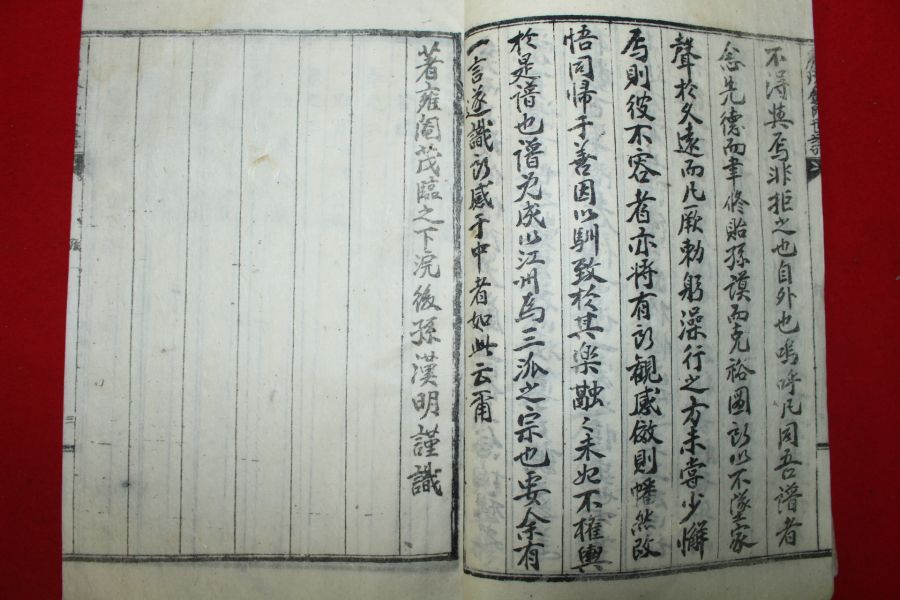 不得與焉非拒之也自外也嗚呼凡同吾譜者
念先德而聿修貽孫謨而克裕圖所以不墜家
聲於久遠而凡厥勅躬澡行之方未嘗少懈
焉則彼不容者亦將有所觀感儆則幡然改
悟同歸于善因以馴致於其樂融〻未始不權輿
於是譜也譜旣成以江州爲三派之宗也要余有
一言遂識所感于中者如此云爾
著雍閹茂臨之下浣後孫漢明謹識
三